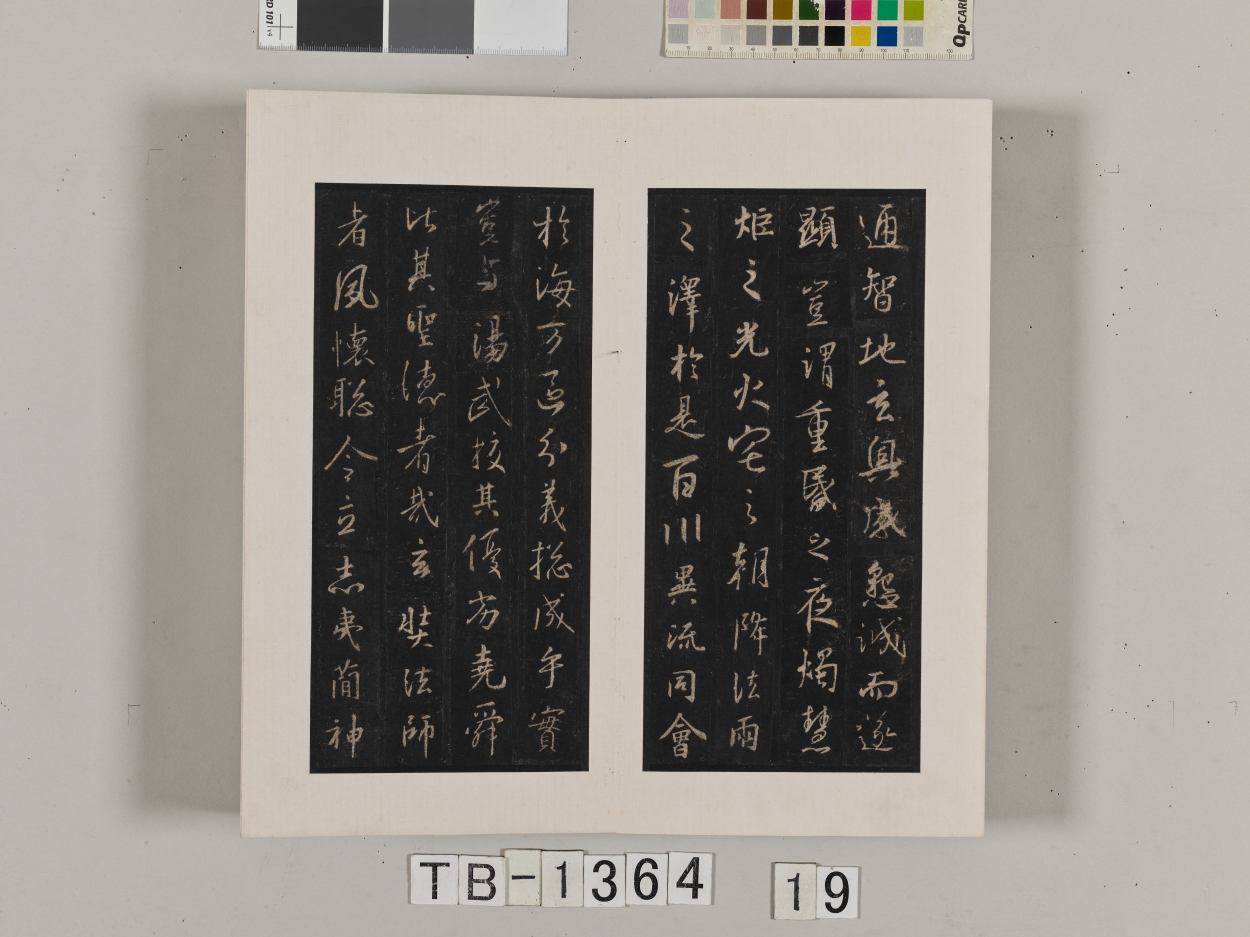 通智地玄奧感懇誠而遂
顯豈謂重昬之夜燭慧
炬之光火宅之朝降法雨
之澤於是百川異流同會
於海万區分義揔成乎實
豈与湯武挍其優劣堯舜
比其聖德者哉玄奘法師
者夙懷聡令立志夷簡神
TB-1364 19
QPCARD 101 v4
QPCARD